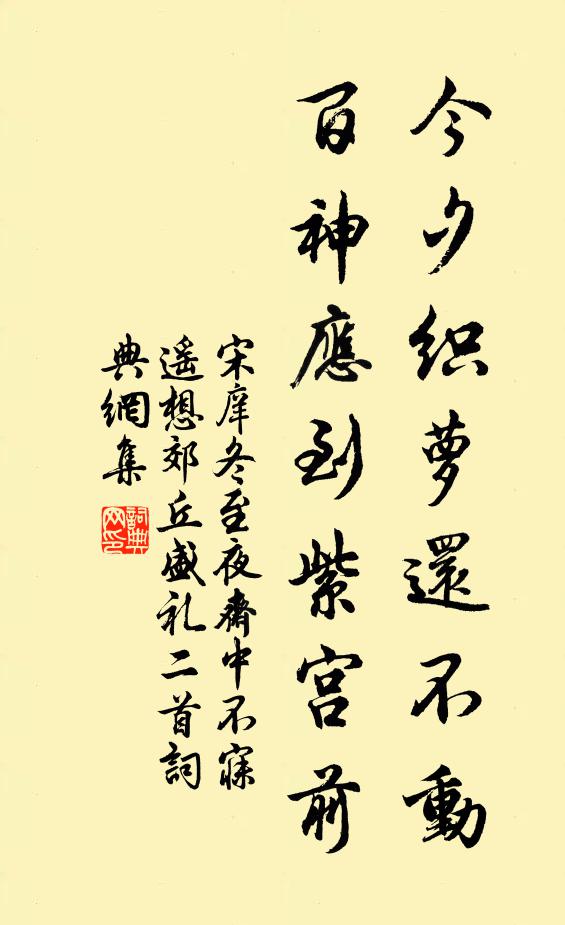 今夕织萝還不動
百神應到紫宫前
宋庠冬至夜齋中不寐
遥想郊丘盛礼二首詞
典網集
詞典网印